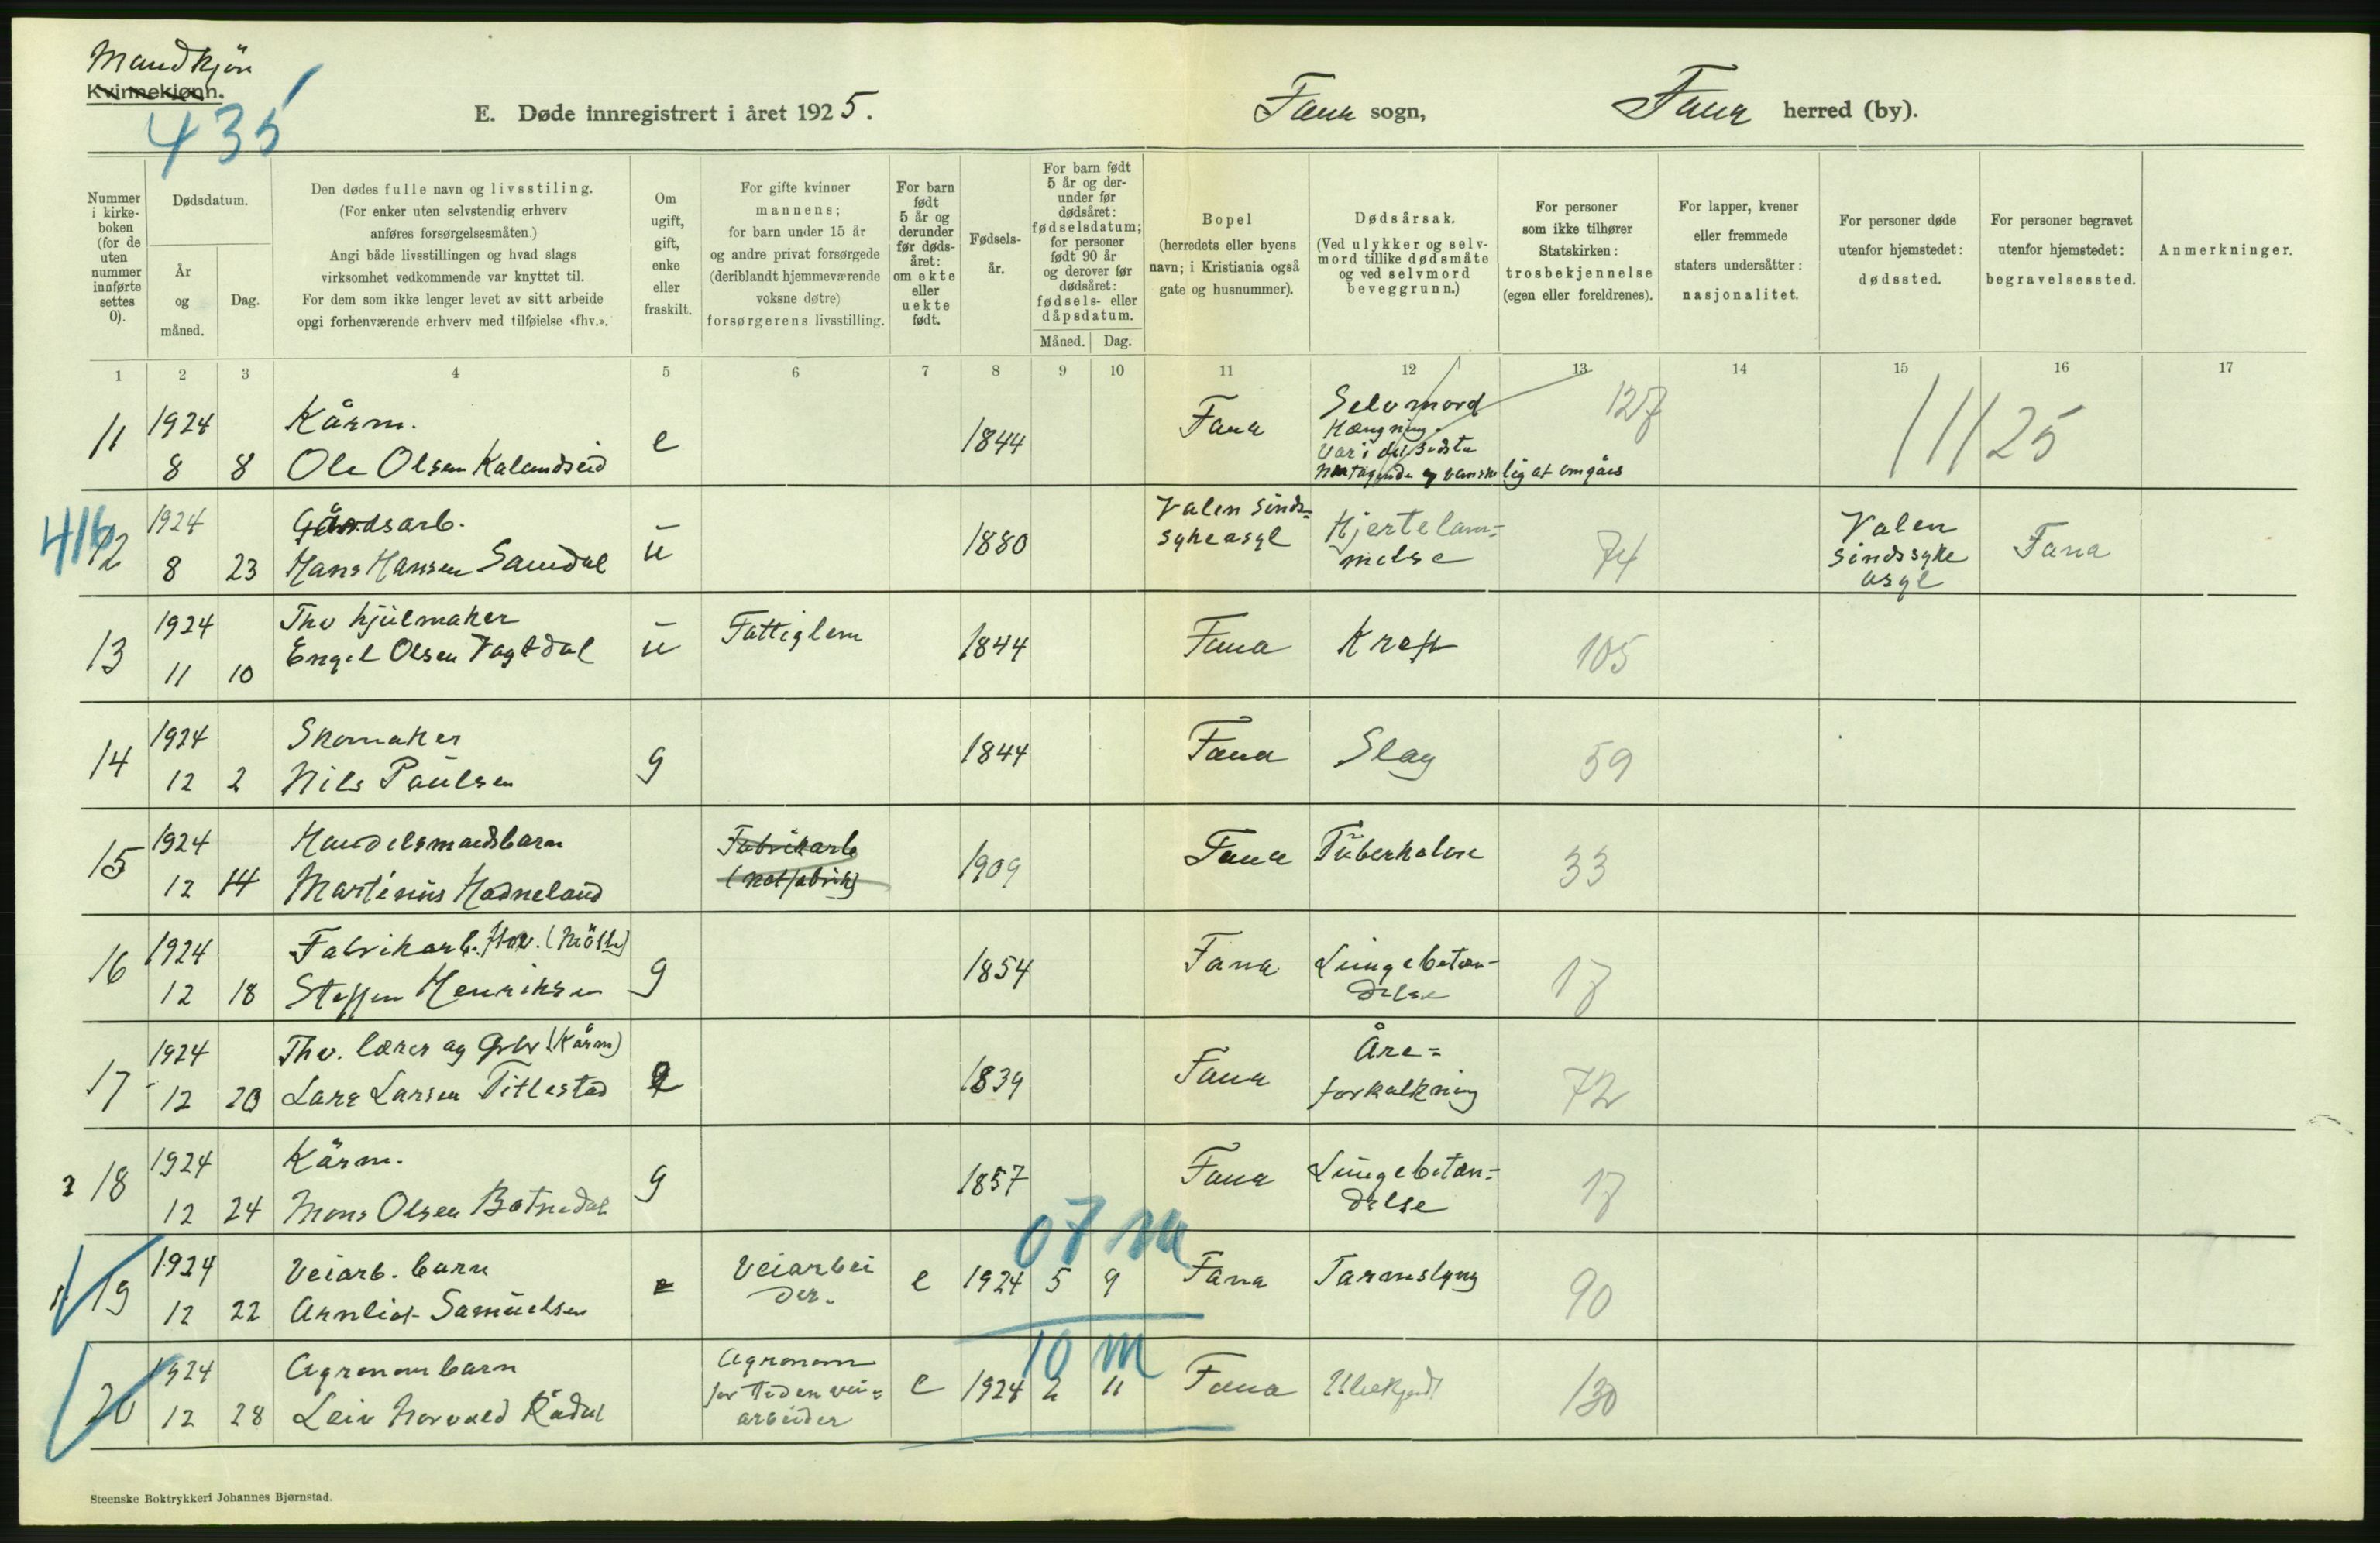 Mandkjön
Kvinnekjønn.
435
E. Døde innregistrert i året 1925.
Fana sogn,
Fana herred (by).
Nummer i kirke-boken (for de uten nummer innførte settes 0).
Dødsdatum.
År og måned.
Dag.
Den dødes fulle navn og livsstiling.
(For enker uten selvstendig erhverv
anføres forsørgelsesmåten.)
Angi både livsstillingen og hvad slags
virksomhet vedkommende var knyttet til.
For dem som ikke lenger levet av sitt arbeide
opgi forhenværende erhverv med tilføielse «fhv.».
Om ugift, gift, enke eller fraskilt.
For gifte kvinner
mannens;
for barn under 15 år
og andre privat forsørgede
(deriblandt hjemmeværende
voksne døtre)
forsørgerens livsstilling.
For barn født 5 år og derunder før døds-året: om ekte eller uekte født.
Fødsels-år.
For barn født
5 år og der-
under før
dødsåret:
fødselsdatum;
for personer
født 90 år
og derover før
dødsåret:
fødsels- eller
dåpsdatum.
Måned. Dag.
Bopel
(herredets eller byens
navn; i Kristiania også
gate og husnummer).
Dødsårsak.
(Ved ulykker og selv-
mord tillike dødsmåte
og ved selvmord
beveggrunn.)
For personer
som ikke tilhører
Statskirken:
trosbekjennelse
(egen eller foreldrenes).
For lapper, kvener
eller fremmede
staters undersåtter:
nasjonalitet.
For personer døde
utenfor hjemstedet:
dødssted.
For personer begravet
utenfor hjemstedet:
begravelsessted.
Anmerkninger.
1 2 3 4 5 6 7 8 9 10 11 12 13 14 15 16 17
11 1924 Kårm. e 1844 Fana Selvmord 127
Hængning.
Var i det sidste
8 8 Ole Olsen Kalandseid
og vanskelig at omgåes
1/1 25
416
12 1924 Gårdsarb. u 1880 Valen Sinds= Hjertelam= 74 Valen Fana
8 23 Hans Hansen Samdal sykeasyl melse sindssyke
asyl
13 1924 Fhv hjulmaker u Fattiglem 1844 Fana Kreft 105
11 10 Engel Olsen Vagtdal
14 1924 Skomaker g 1844 Fana Slag 59
12 2 Nils Paulsen
15 1924 Handelsmandsbarn Fabrikarb 1909 Fana Tuberkolose 33
12 14 Martinus Hadneland (notfabrik)
16 1924 Fabrikarb. fhv. (Mölle) g 1854 Fana Lungebetæn- 17
12 18 Steffen Henriksen delse
17 1924 Fhv. lærer og Grbr (Kårm) e 1839 Fana Åre=
12 20 Lars Larsen Titlestad forkalkning 72
2 18 1924 Kårm. g 1857 Fana Lungebetæn= 17
12 24 Mons Olsen Botnedal delse
07 m
1 19 1924 Veiarb. barn Veiarbei e 1924 5 9 Fana Tarmslyng 90
12 22 Arnliot Samuelsen der.
10 m
20 1924 Agronom barn Agronom e 1924 2 11 Fana Ubekjendt 130
12 28 Leiv Norvald Rådal for tiden vei=
arbeider
Steenske Boktrykkeri Johannes Bjørnstad.